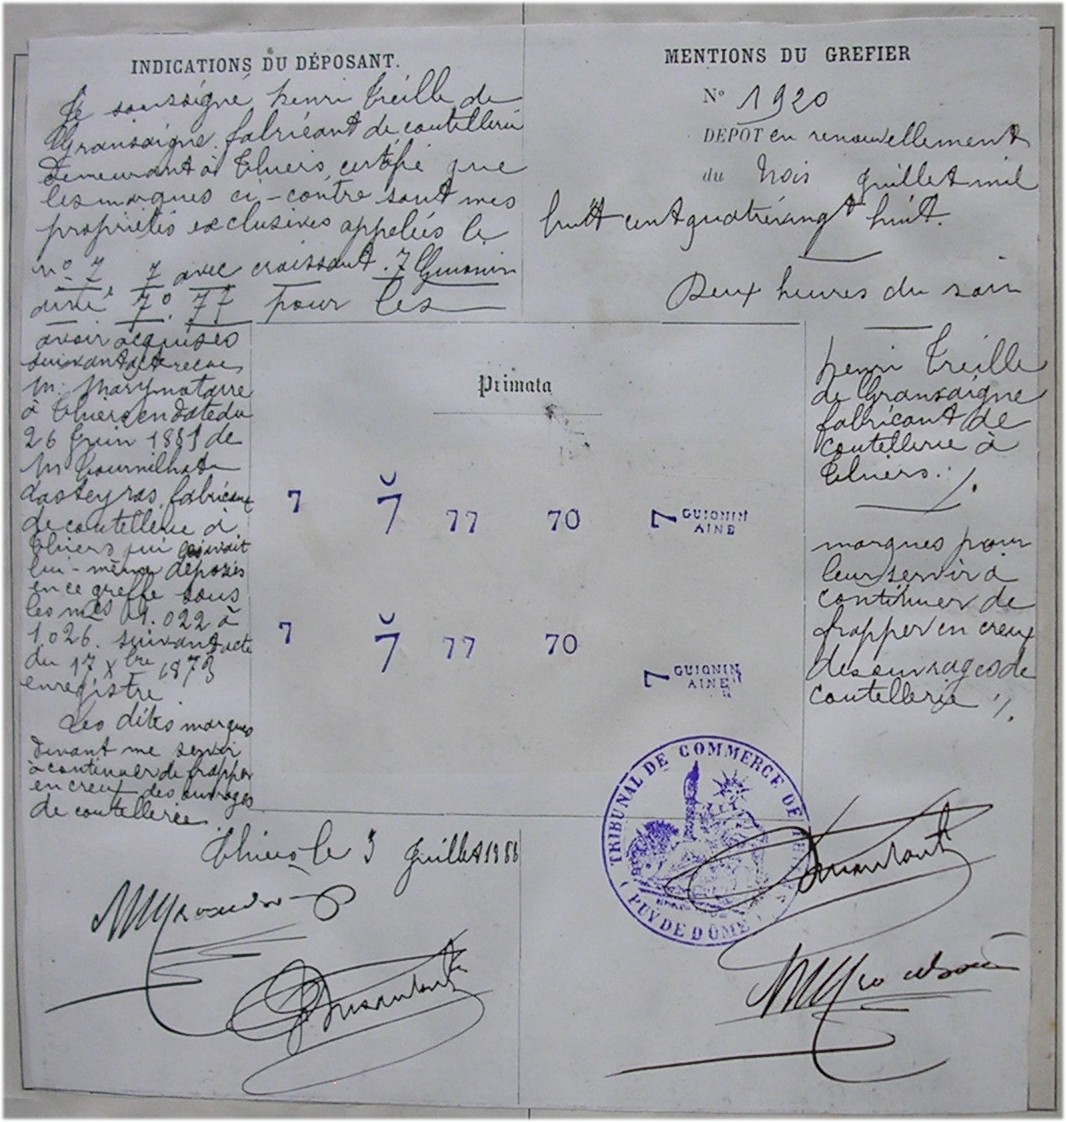 INDICATIONS DU DÉPOSANT.
Je soussigné, henri Treille de
Gransaigne, fabricant de coutellerie
demeurant à Thiers, certifie que
les marques ci-contre sont mes
propriétés exclusives appelées le
nº 7, 7 avec croissant. 7 Guionin
ainé, 70. 77 pour les
avoir acquises
suivant acte recu
M. Mary notaire
à Thiers en date du
26 Juin 1881 de
M
dasteyras, fabricant
de coutellerie à
Thiers qui avait
lui-même déposés
en ce greffe sous
les nos 1.022 à
1.026. suivant acte
du 17 Xbre 1873
enregistré
Les dites marques
devant me servir
à continuer de frapper
en creux des ouvrages
de coutellerie
Thiers le 3 Juillet 1888
MENTIONS DU GREFIER
Nº 1920
DEPOT en renouvellement
du trois Juillet mil
huit cent quatrevingt huit.
Deux heures du soir
henri Treille
de Gransaigne
fabricant de
coutellerie à
Thiers.
marques pour
leur servir à
continuer de
frapper en creux
des ouvrages de
coutellerie
Primata
7 7 77 70 7 GUIONIN
AINE
7 7 77 70 7 GUIONIN
AINE
TRIBUNAL DE COMMERCE DE
(PUY DE DÔME)